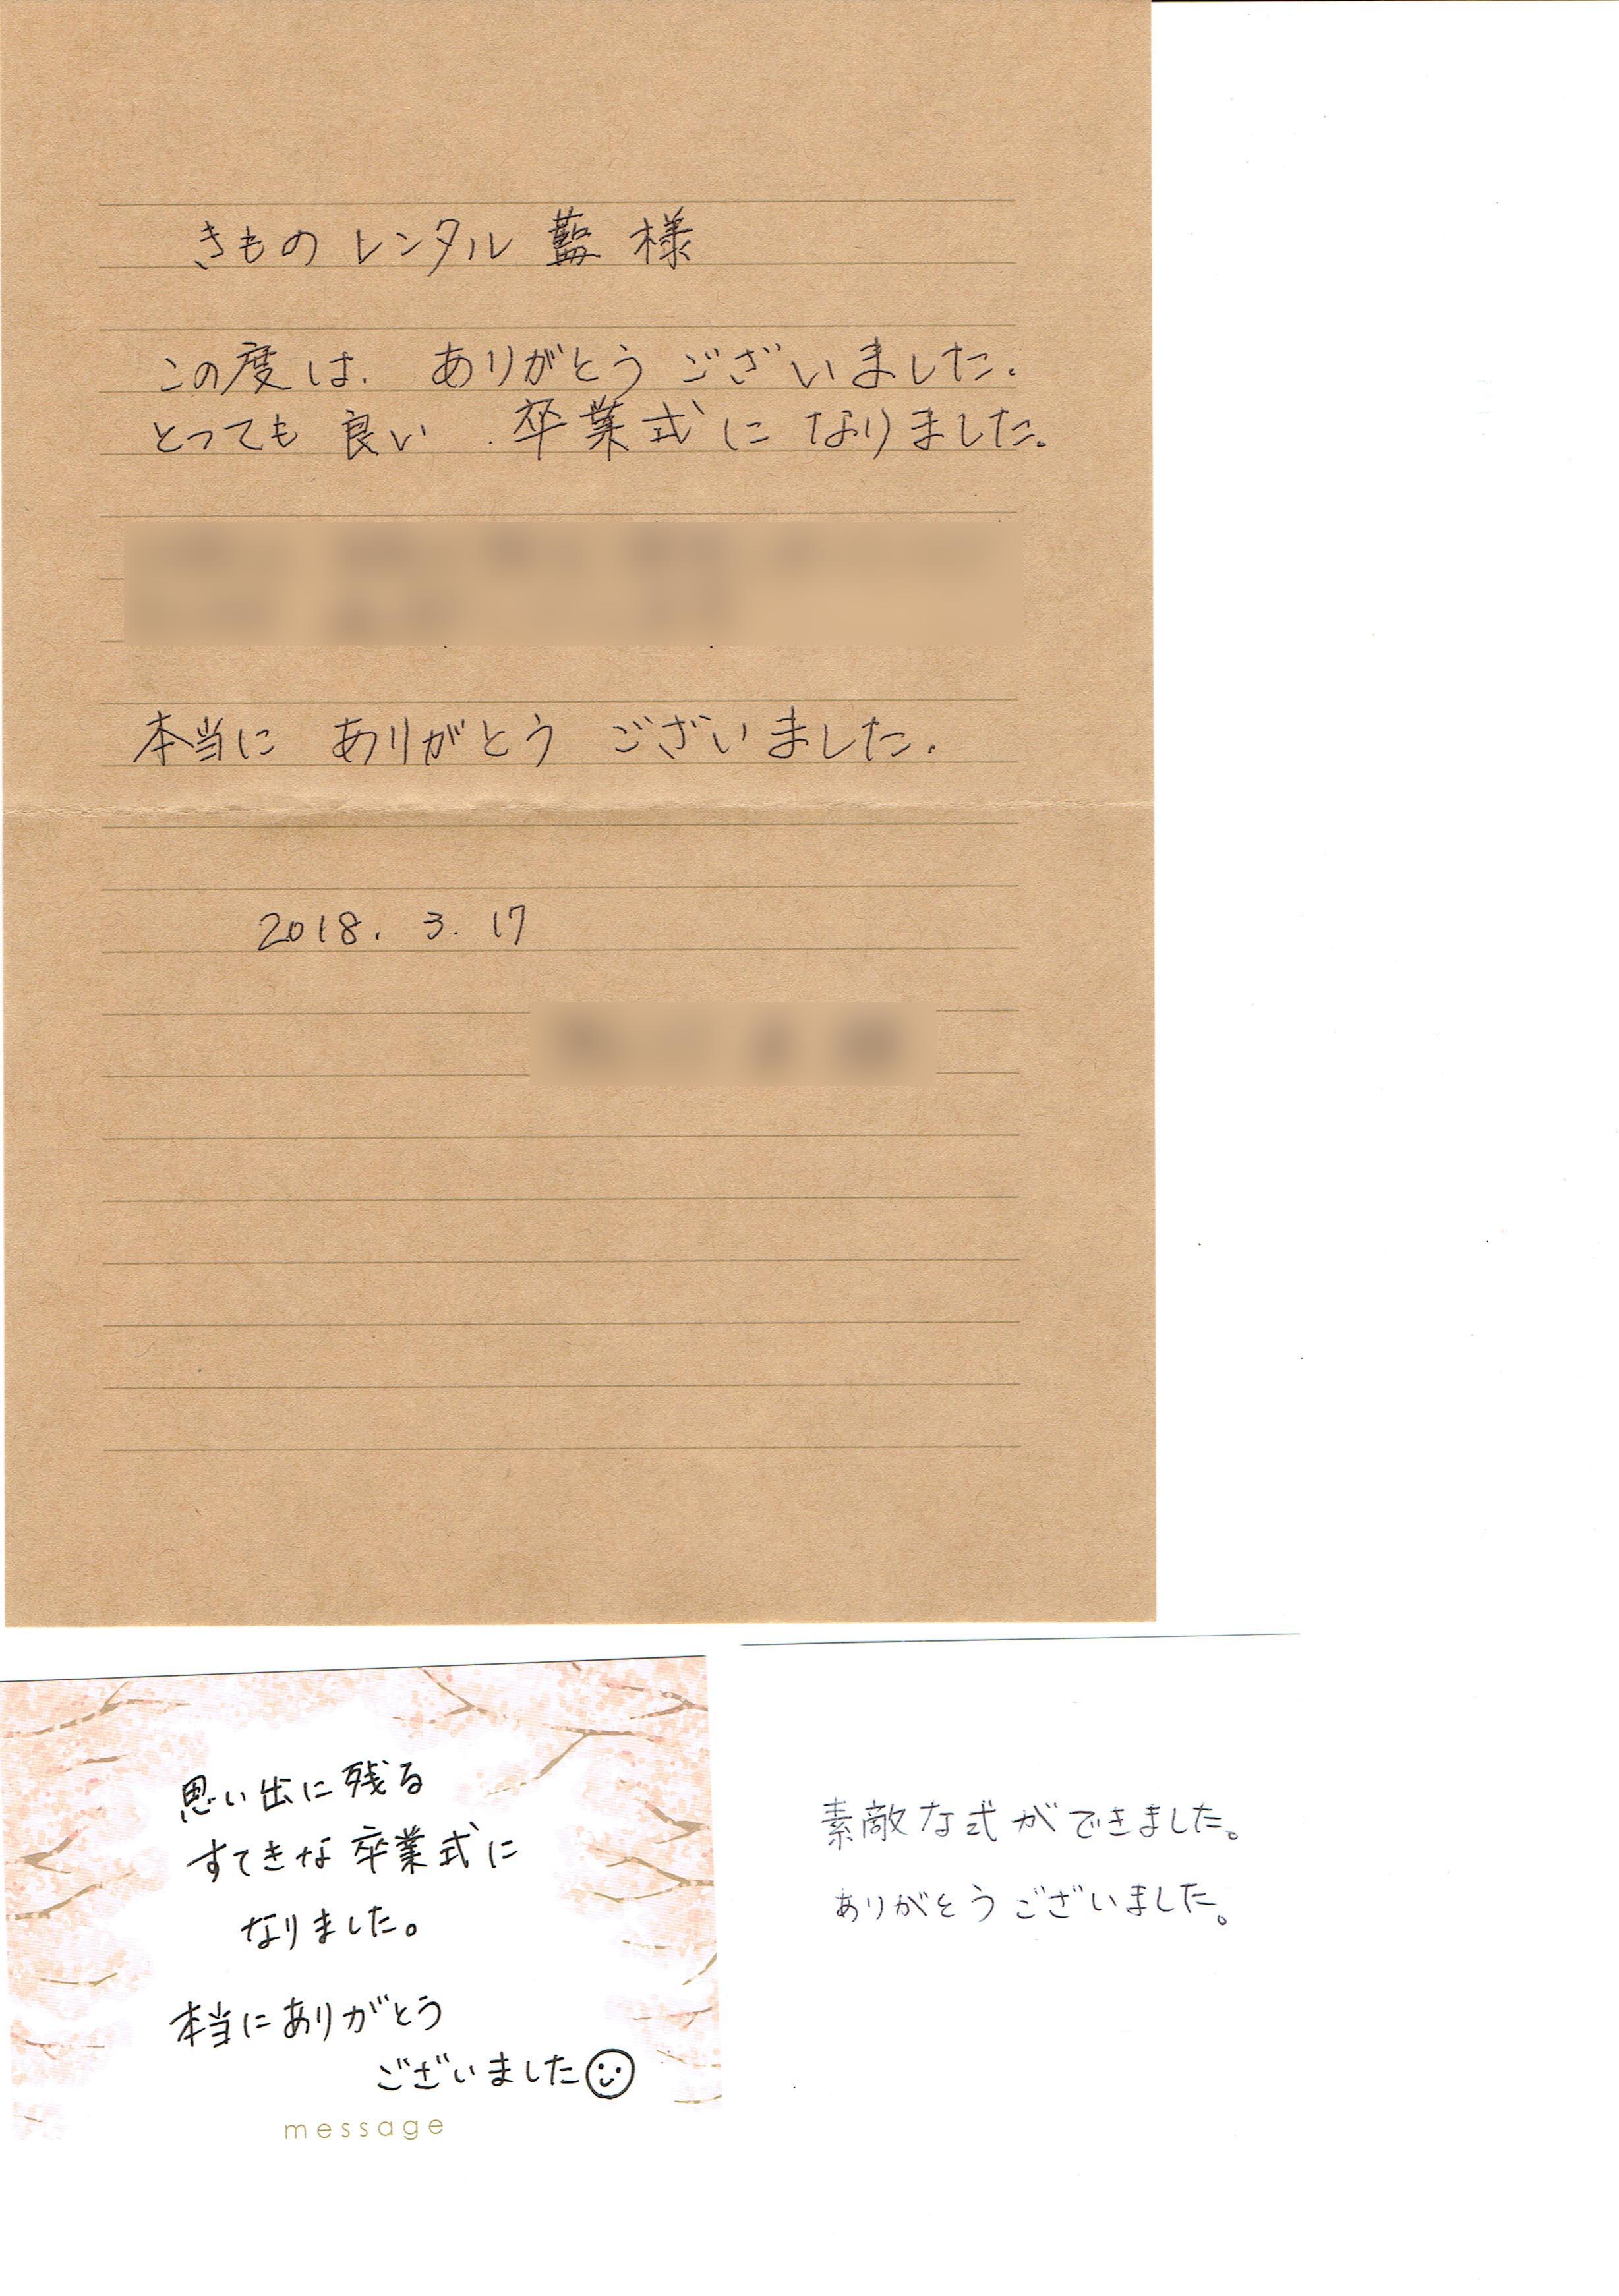 きものレンタル 藍 様
この度は. ありがとう ございました.
とっても 良い 卒業式に なりました.
本当に ありがとう ございました.
2018. 3. 17
思い出に残る
すてきな卒業式に
なりました。
本当にありがとう
ございました
message
素敵な式ができました。
ありがとうございました。